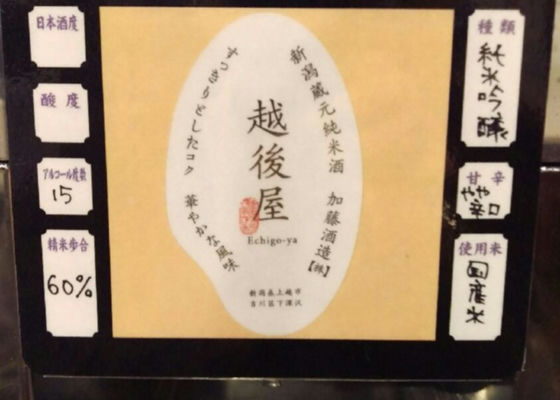 種類
純米吟醸
甘辛
やや
辛口
使用米
国産米
新潟蔵元純米酒 加藤酒造【株】
越後屋
Echigo-ya
すっきりとしたコク 華やかな風味
新潟県上越市
吉川区下深沢
日本酒度
酸度
アルコール度数
15
精米歩合
60%